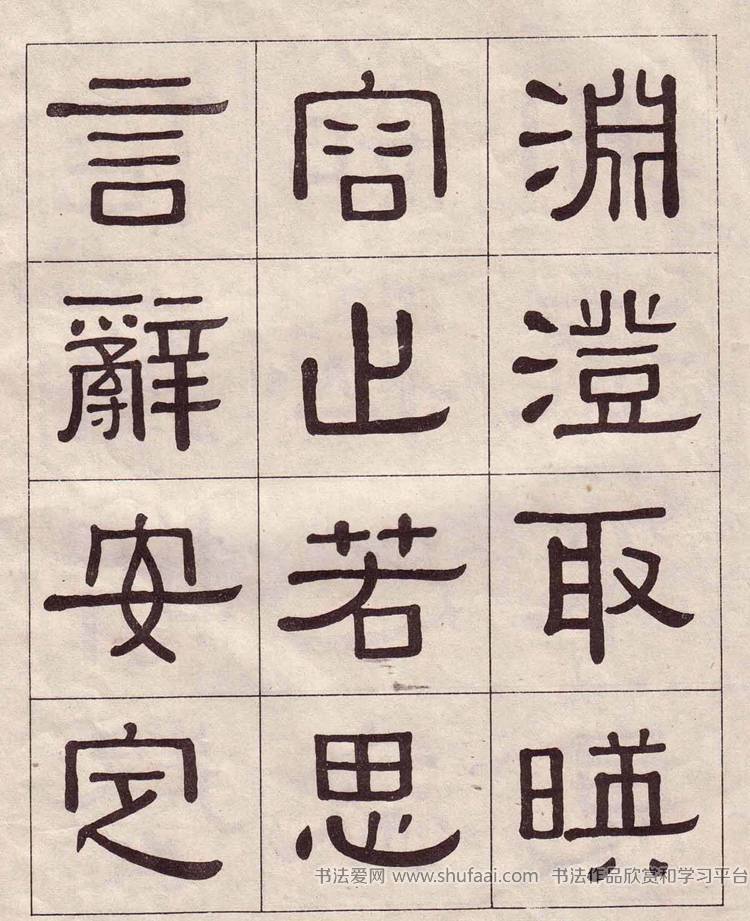 淵澄取暎
容止若思
言辭安定
书法爱网 www.shufaai.com 书法作品欣赏和学习平台